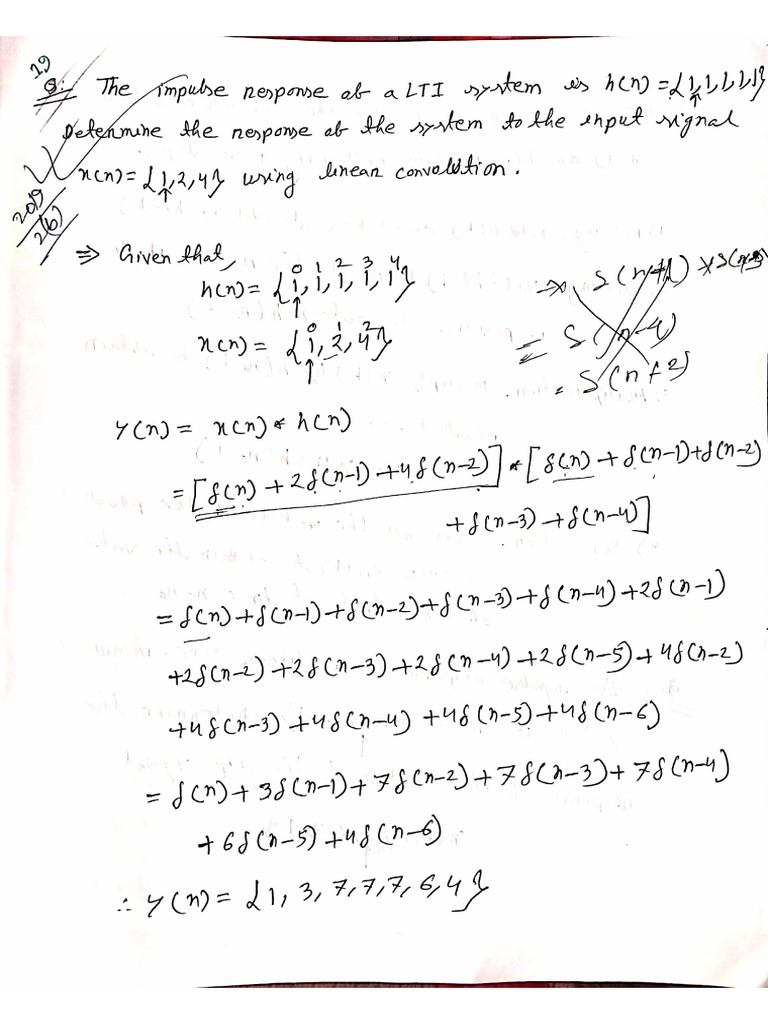 19
Q:- The impulse response ob a LTI system is h(n) = {1,1,1,1,1}
↑
Determine the response ob the system to the input signal
x(n) = {1,2,4} using linear convolution.
↑
2019
2(b)
⇒ Given that,
0 1 2 3 4
h(n) = {1,1,1,1,1}
↑
0 1 2
x(n) = {1,2,4}
↑
δ(n+1) * δ(n-3)
= δ(n-4)
= δ(n+2)
y(n) = x(n) * h(n)
= [δ(n) + 2δ(n-1) + 4δ(n-2)] * [δ(n) + δ(n-1) + δ(n-2)
+ δ(n-3) + δ(n-4)]
= δ(n) + δ(n-1) + δ(n-2) + δ(n-3) + δ(n-4) + 2δ(n-1)
+2δ(n-2) + 2δ(n-3) + 2δ(n-4) + 2δ(n-5) + 4δ(n-2)
+4δ(n-3) + 4δ(n-4) + 4δ(n-5) + 4δ(n-6)
= δ(n) + 3δ(n-1) + 7δ(n-2) + 7δ(n-3) + 7δ(n-4)
+ 6δ(n-5) + 4δ(n-6)
∴ y(n) = {1, 3, 7, 7, 7, 6, 4}